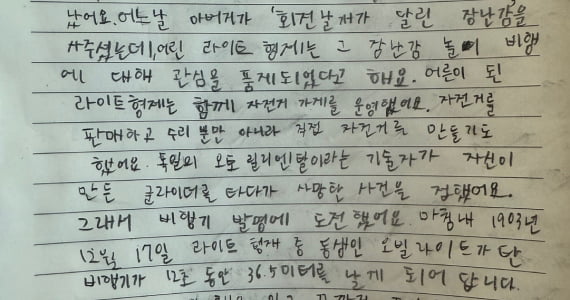 났어요. 어느날 아버지가 '회전날개가 달린 장난감'을
사주셨는데, 어린 라이트 형제는 그 장난감 놀이 비행
에 대해 관심을 품게되었다고 해요. 어른이 된
라이트형제는 함께 자전거 가게를 운영했어요. 자전거를
판매하고 수리 뿐만 아니라 직접 자전거를 만들기도
했어요. 독일의 오토 릴리엔탈이라는 기술자가 자신이
만든 글라이더를 타다가 사망한 사건을 접했어요.
그래서 비행기 발명에 도전했어요. 마침내 1903년
12월 17일 라이트 형제 중 동생인 오빌 라이트가 탄
비행기가 12초 동안 36.5미터를 날게 되어 답니다.